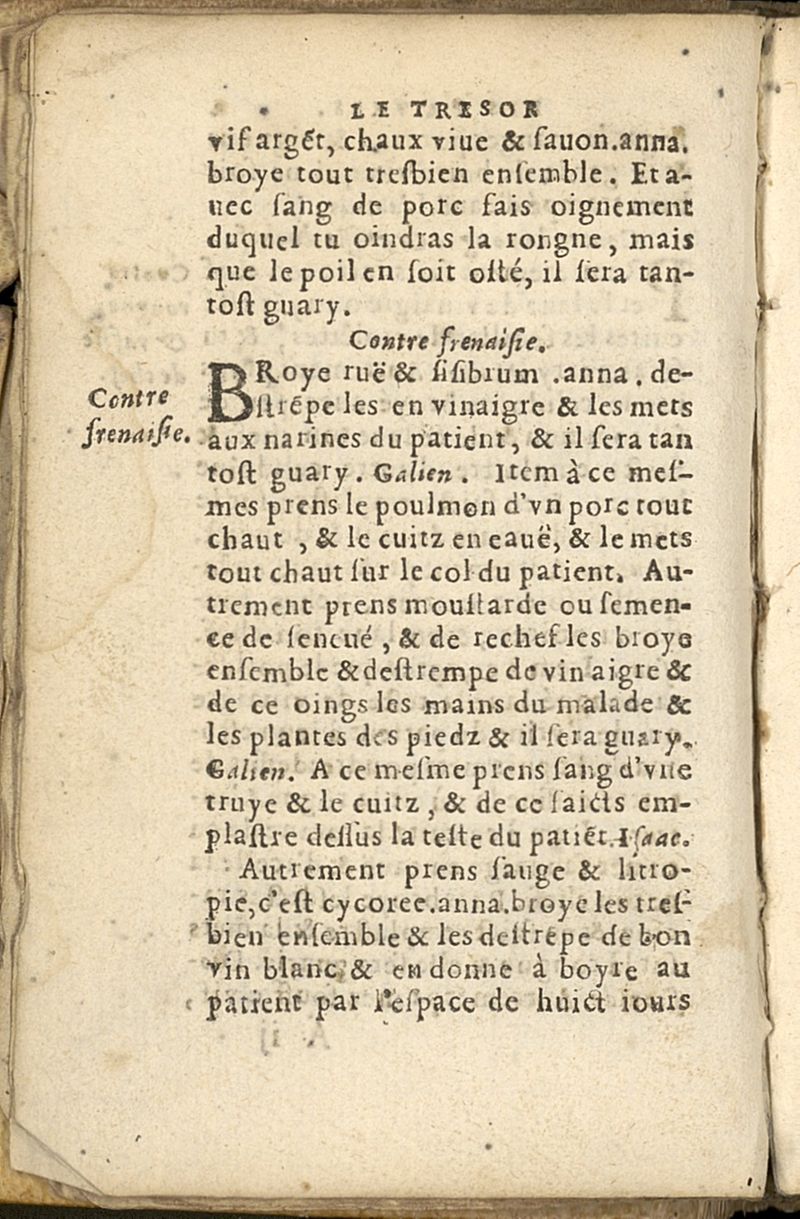 LE TRESOR
vif argẽt, chaux viue & ſauon.anna.
broye tout treſbien enſemble. Et a-
uec ſang de porc fais oignement
duquel tu oindras la rongne, mais
que le poil en ſoit oſté, il ſera tan-
toſt guary.
Contre frenaiſie.
BRoye ruë & ſiſibrium .anna. de-
ſtrẽpe les en vinaigre & les mets
Contre
frenaiſie.
aux narines du patient, & il ſera tan
toſt guary. Galien. Item à ce meſ-
mes prens le poulmon d'vn porc tout
chaut , & le cuitz en eauë, & le mets
tout chaut ſur le col du patient. Au-
trement prens mouſtarde ou ſemen-
ce de ſeneué , & de rechef les broye
enſemble & deſtrempe de vin aigre &
de ce oings les mains du malade &
les plantes des piedz & il ſera guary.
Galien. A ce meſme prens ſang d'vne
truye & le cuitz , & de ce faicts em-
plaſtre deſſus la teſte du patiẽt. Iſaac.
Autrement prens ſauge & litro-
pie, c'eſt cycoree.anna.broye les treſ-
bien enſemble & les deſtrẽpe de bon
vin blanc, & en donne à boyre au
patient par l'eſpace de huict iours